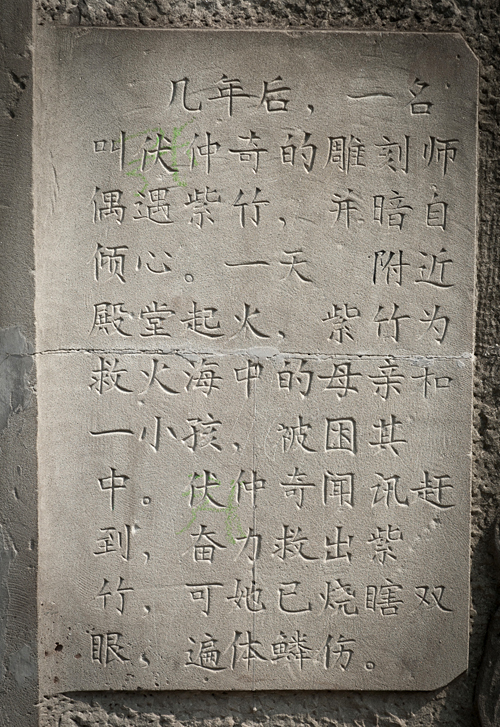 几年后，一名
叫伏仲奇的雕刻师
偶遇紫竹，并暗自
倾心。一天 附近
殿堂起火，紫竹为
救火海中的母亲和
一小孩，被困其
中。伏仲奇闻讯赶
到，奋力救出紫
竹，可她已烧瞎双
眼，遍体鳞伤。